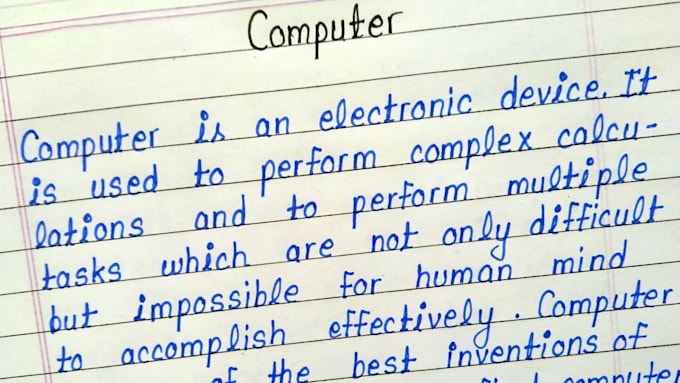 Computer
Computer is an electronic device. It
is used to perform complex calcu-
lations and to perform multiple
tasks which are not only difficult
but impossible for human mind
to accomplish effectively. Computer
of the best inventions of
computer